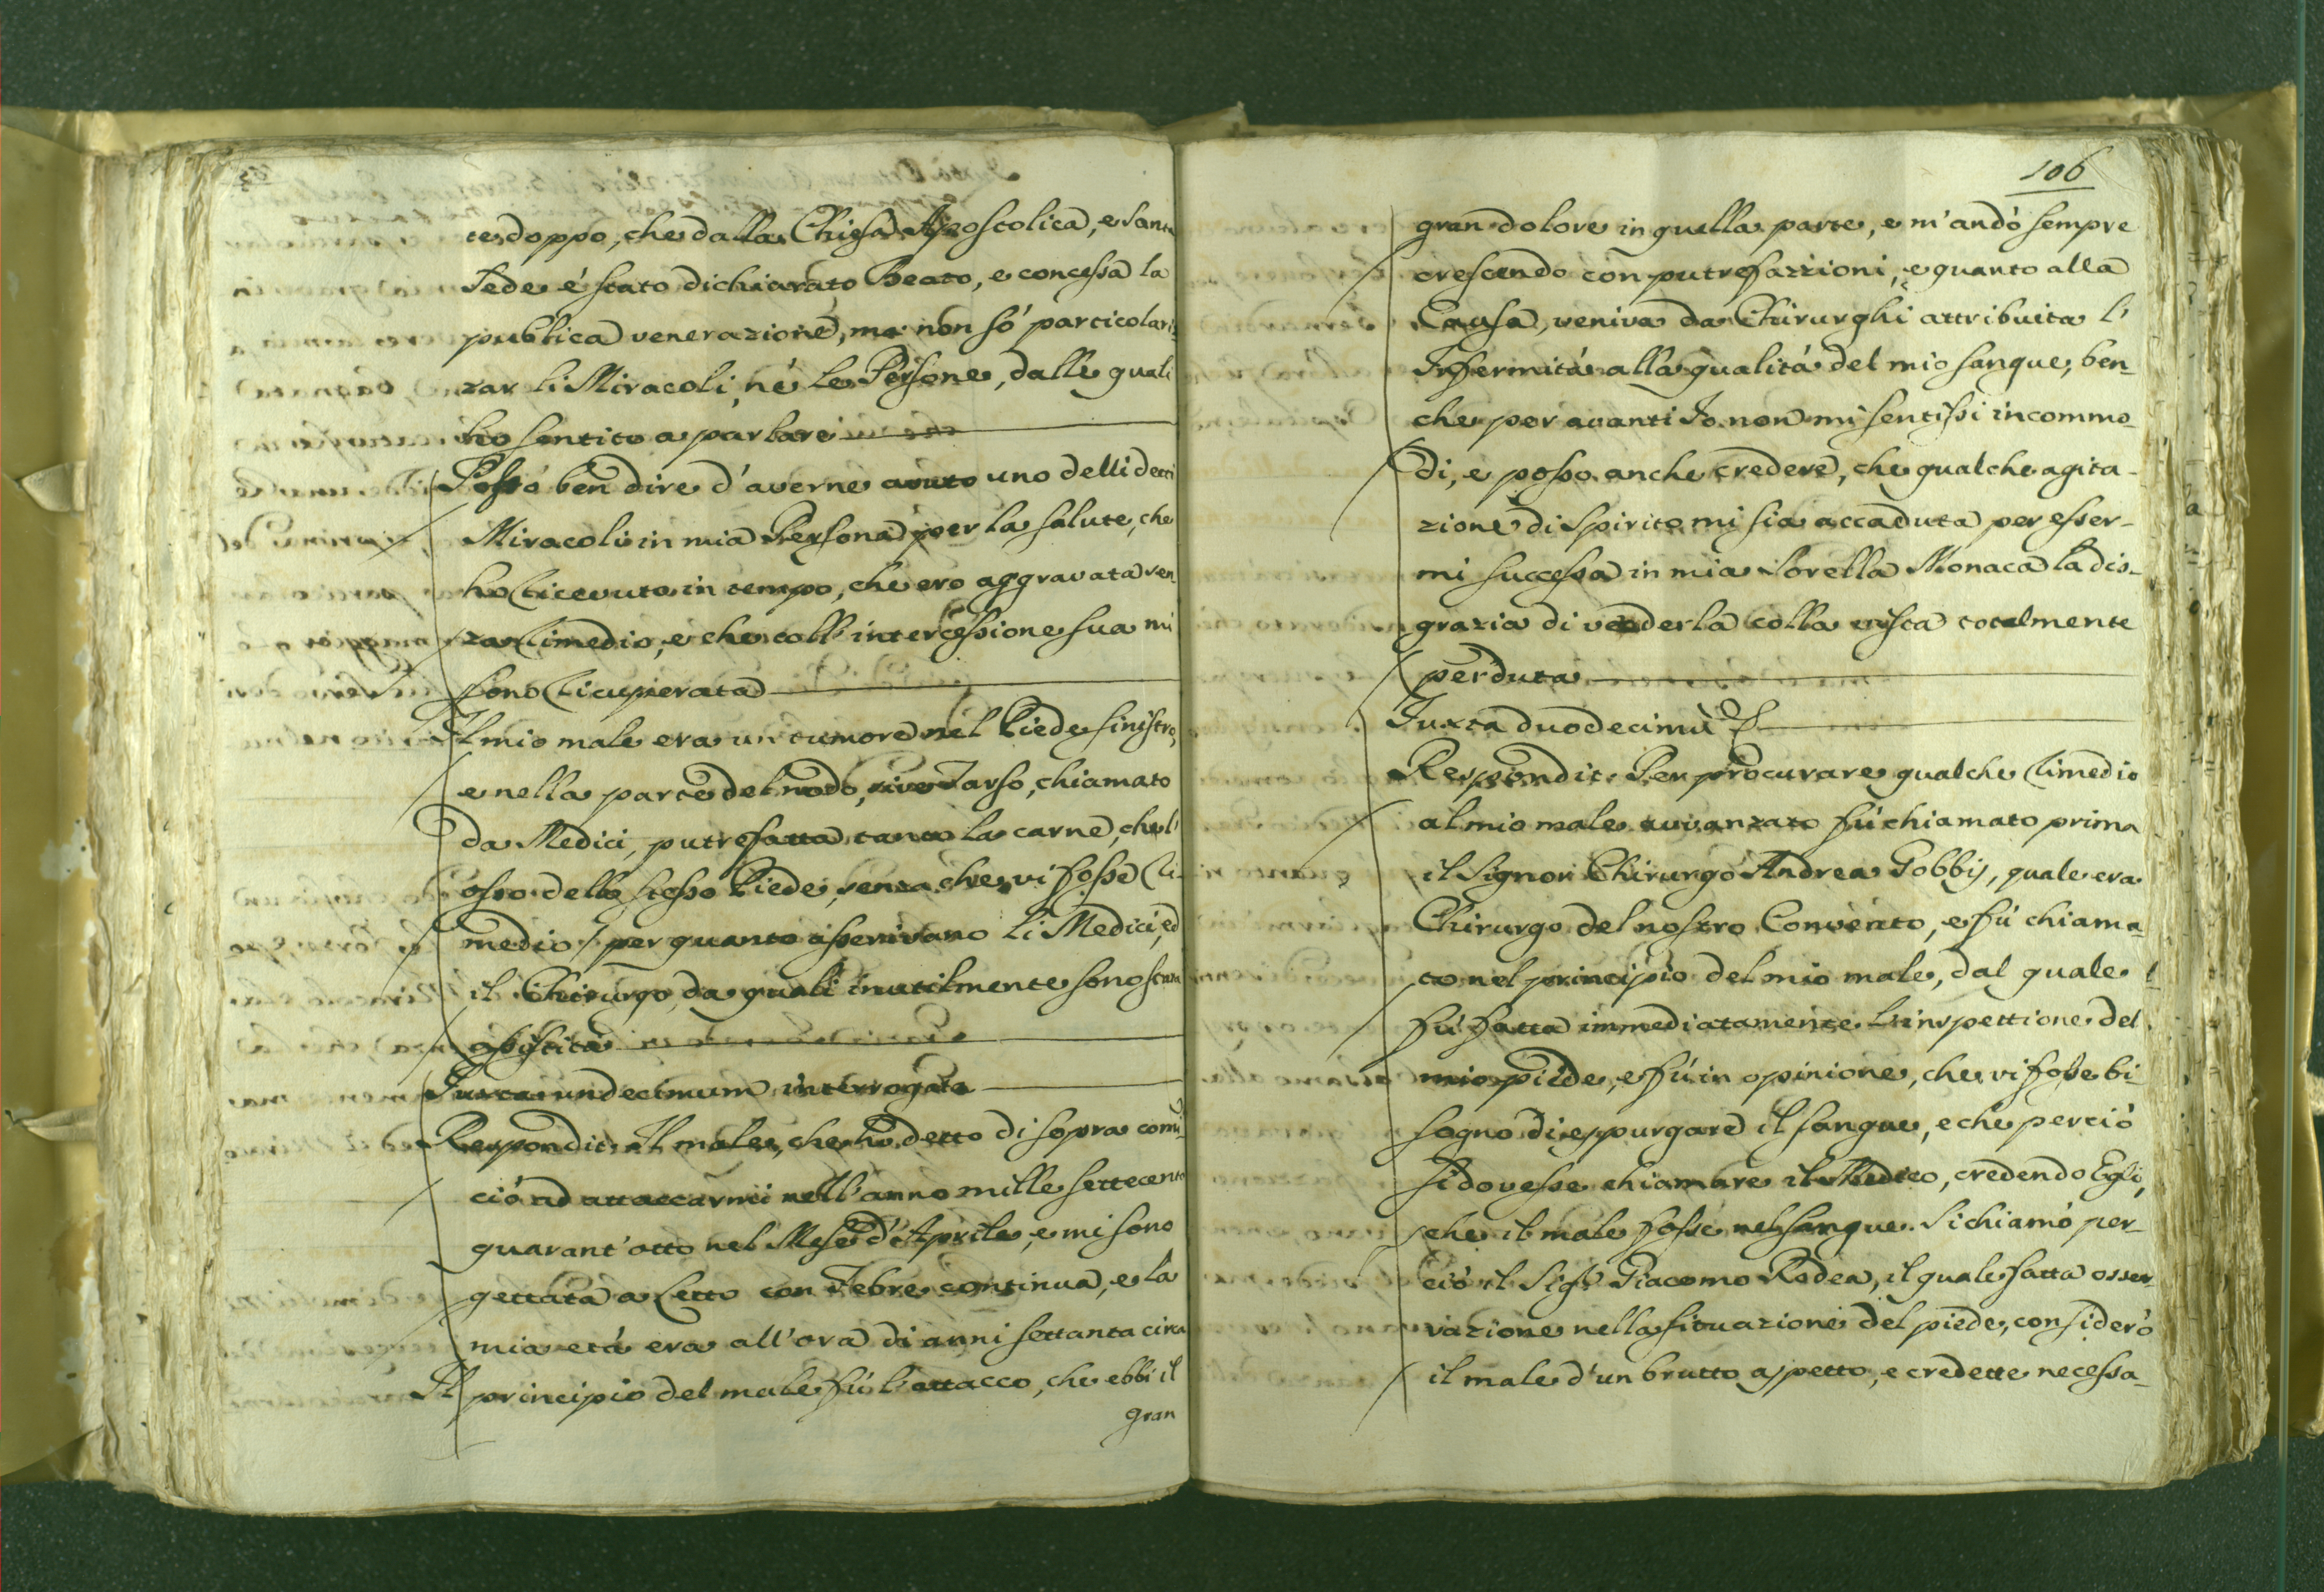 te doppo, che dalla Chiesa Apostolica, e Santa
Sede é stato dichiarato Beato, e concessa la
publica venerazione, ma non só particolari-
zar li Miracoli, né le Persone, dalle quali
ho sentito a parlare
Posso ben dire d'averne avuto uno delli detti
Miracoli in mia Persona per la salute, che
ho ricevuto in tempo, che ero aggravata sen-
za rimedio, e che coll'intercessione sua mi
sono ricuperata
Il mio male era un tumore nel Piede sinistro,
e nella parte del nodo, sive Tarso, chiamato
da Medici, putrefatta tanto la carne, che l'
osso dello stesso Piede, senza che vi fosse ri-
medio / per quanto asserivano li Medici, ed
il Chirurgo, da quali inutilmente sono stata
assistita
Iuxta undecimum interrogata
Respondit: Il male, che ho detto di sopra comĩ-
ció ad attaccarmi nell'anno mille settecento
quarant'otto nel Mese d'Aprile, e mi sono
gettata a Letto con Febre continua, e la
mia etá era all'ora di anni settanta circa
Il principio del male fú l'attacco, che ebbi il
gran
106
gran dolore in quella parte, e m'andó sempre
crescendo con putrefazzioni, e quanto alla
Causa, veniva da Chirurghi attribuita l'
Infermitá alla qualitá del mio sangue, ben-
che per avanti Io non mi sentissi incommo-
di, e posso anche credere, che qualche agita-
zione di Spirito mi sia accaduta per esser-
mi successa in mia Sorella Monaca la dis-
grazia di vederla colla vista totalmente
perduta
Iuxta duodecimũ
Respondit: Per procurare qualche rimedio
al mio male avvanzato fú chiamato prima
il Signor Chirurgo Andrea Gobbij, quale era
Chirurgo del nostro Convento, e fú chiama-
to nel principio del mio male, dal quale
fú fatta immediatamente l'inspettione del
mio piede, e fú in opinione, che vi fosse bi
sogno di eppurgare il sangue, e che perció
si dovesse chiamare il Medico, credendo Egli,
che il male fosse nel sangue. Si chiamó per-
ció il Sigr. Giacomo Rodea, il quale fatta osser-
vazione nella situazione del piede, consideró
il male d'un brutto aspetto, e credette necessa-